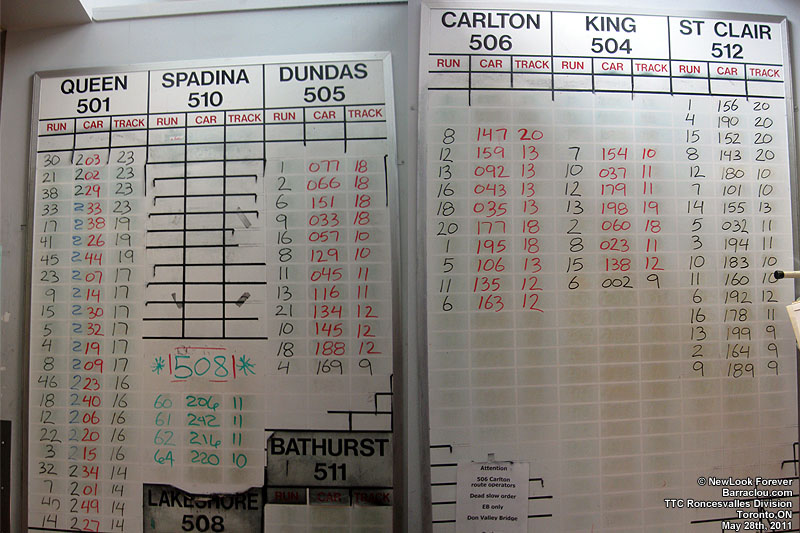 QUEEN
501
SPADINA
510
DUNDAS
505
RUN CAR TRACK RUN CAR TRACK RUN CAR TRACK
30 203 23
21 202 23
38 229 23
33 233 23
17 238 19
41 226 19
45 244 19
23 207 17
9 214 17
15 230 17
5 232 17
4 219 17
8 209 17
46 223 16
18 240 16
12 206 16
22 220 16
3 215 16
32 234 14
7 201 14
40 249 14
14 227 14
*508*
60 206 11
61 242 11
62 216 11
64 220 10
LAKESHORE
508
1 077 18
2 066 18
6 151 18
9 033 18
16 057 10
8 129 10
11 045 11
13 116 11
21 134 12
10 145 12
18 188 12
4 169 9
BATHURST
511
RUN CAR TRACK
CARLTON
506
KING
504
ST CLAIR
512
RUN CAR TRACK RUN CAR TRACK RUN CAR TRACK
8 147 20
12 159 13
13 092 13
16 043 13
18 035 13
20 177 18
1 195 18
5 106 13
11 135 12
6 163 12
7 154 10
10 037 11
12 179 11
13 198 19
2 060 18
8 023 11
15 138 12
6 002 9
1 156 20
4 190 20
15 152 20
8 143 20
12 180 10
7 101 10
14 155 13
5 032 11
3 194 11
10 183 10
11 160 10
6 192 12
16 178 11
13 199 9
2 164 9
9 189 9
Attention
506 Carlton
route operators
Dead slow order
EB only
Don Valley Bridge
© NewLook Forever
Barraclou.com
TTC Roncesvalles Division
Toronto.ON
May 28th. 2011